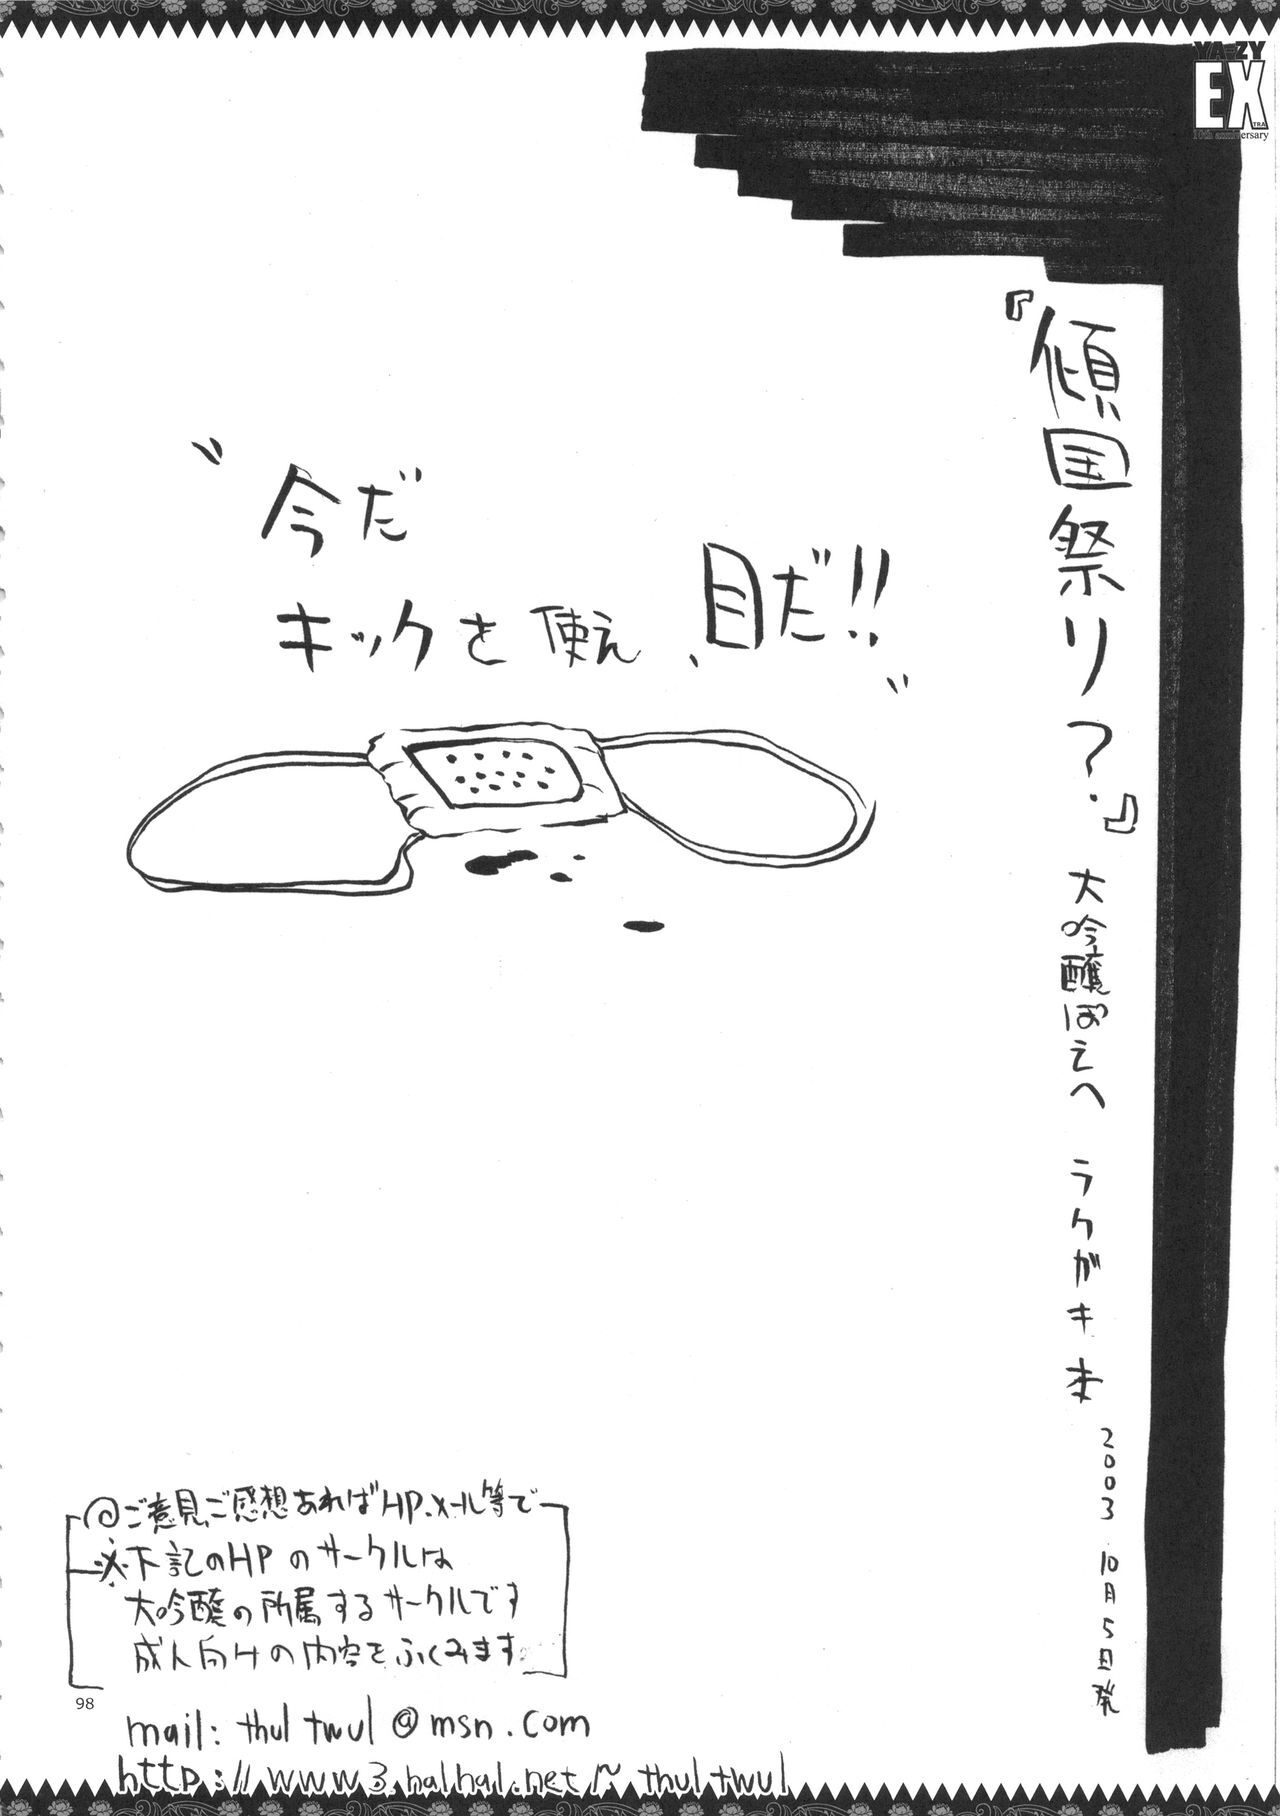 YA-ZY
EX
TRA
10th anniversary
『傾国祭り？』 大吟醸ぱえへ ラクガキ本 2003 10月5日発
"今だ
キックを使え、目だ!!"
@ご意見、ご感想あればHP、メール等で
※下記のHPのサークルは
大吟醸の所属するサークルです
成人向けの内容をふくみます
98
mail: thultwul@msn.com
http://www3.halhal.net/~thultwul